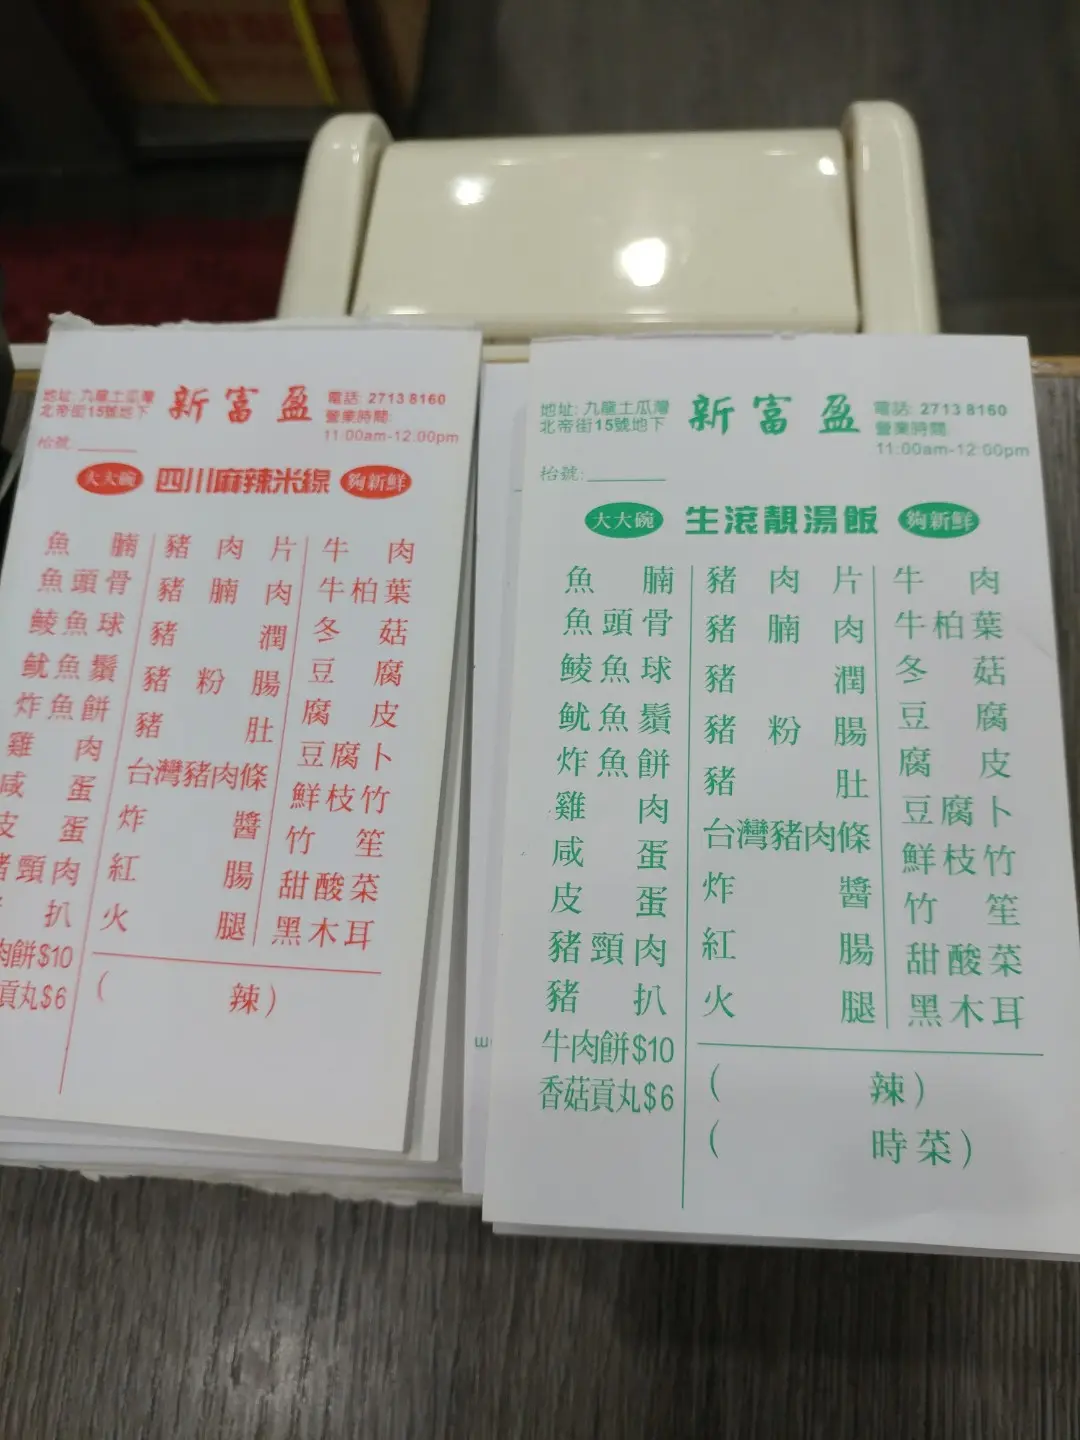 地址: 九龍土瓜灣
北帝街15號地下
新富盈
電話: 2713 8160
營業時間:
11:00am-12:00pm
枱號:
大大碗 四川麻辣米線 夠新鮮
魚腩
魚頭骨
鯪魚球
魷魚鬚
炸魚餅
雞肉
咸蛋
皮蛋
豬頸肉
扒
肉餅$10
貢丸$6
豬肉片
豬腩肉
豬潤
豬粉腸
豬肚
台灣豬肉條
炸醬
紅腸
火腿
牛肉
牛柏葉
冬菇
豆腐
腐皮
豆腐卜
鮮枝竹
竹笙
甜酸菜
黑木耳
( 辣)
地址: 九龍土瓜灣
北帝街15號地下
新富盈
電話: 2713 8160
營業時間:
11:00am-12:00pm
枱號:
大大碗 生滾靚湯飯 夠新鮮
魚腩
魚頭骨
鯪魚球
魷魚鬚
炸魚餅
雞肉
咸蛋
皮蛋
豬頸肉
豬扒
牛肉餅$10
香菇貢丸$6
豬肉片
豬腩肉
豬潤
豬粉腸
豬肚
台灣豬肉條
炸醬
紅腸
火腿
牛肉
牛柏葉
冬菇
豆腐
腐皮
豆腐卜
鮮枝竹
竹笙
甜酸菜
黑木耳
( 辣)
( 時菜)